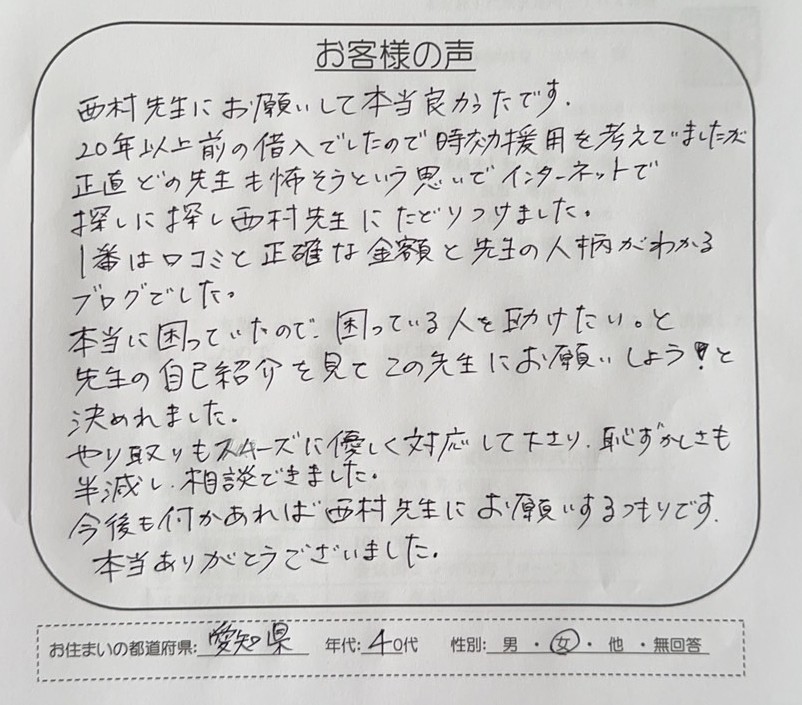 お客様の声
西村先生にお願いして本当良かったです.
20年以上前の借入でしたので時効援用を考えていましたが
正直どの先生も怖そうという思いでインターネットで
探しに探し西村先生にたどりつけました。
1番は口コミと正確な金額と先生の人柄がわかる
ブログでした。
本当に困っていたので、困っている人を助けたい。と
先生の自己紹介を見てこの先生にお願いしよう!と
決めれました。
やり取りもスムーズに優しく対応して下さり、恥ずかしさも
半減し、相談できました。
今後も何かあれば西村先生にお願いするつもりです.
本当ありがとうございました。
お住まいの都道府県: 愛知県 年代: 40代 性別: 男 ・ 女 ・ 他 ・無回答